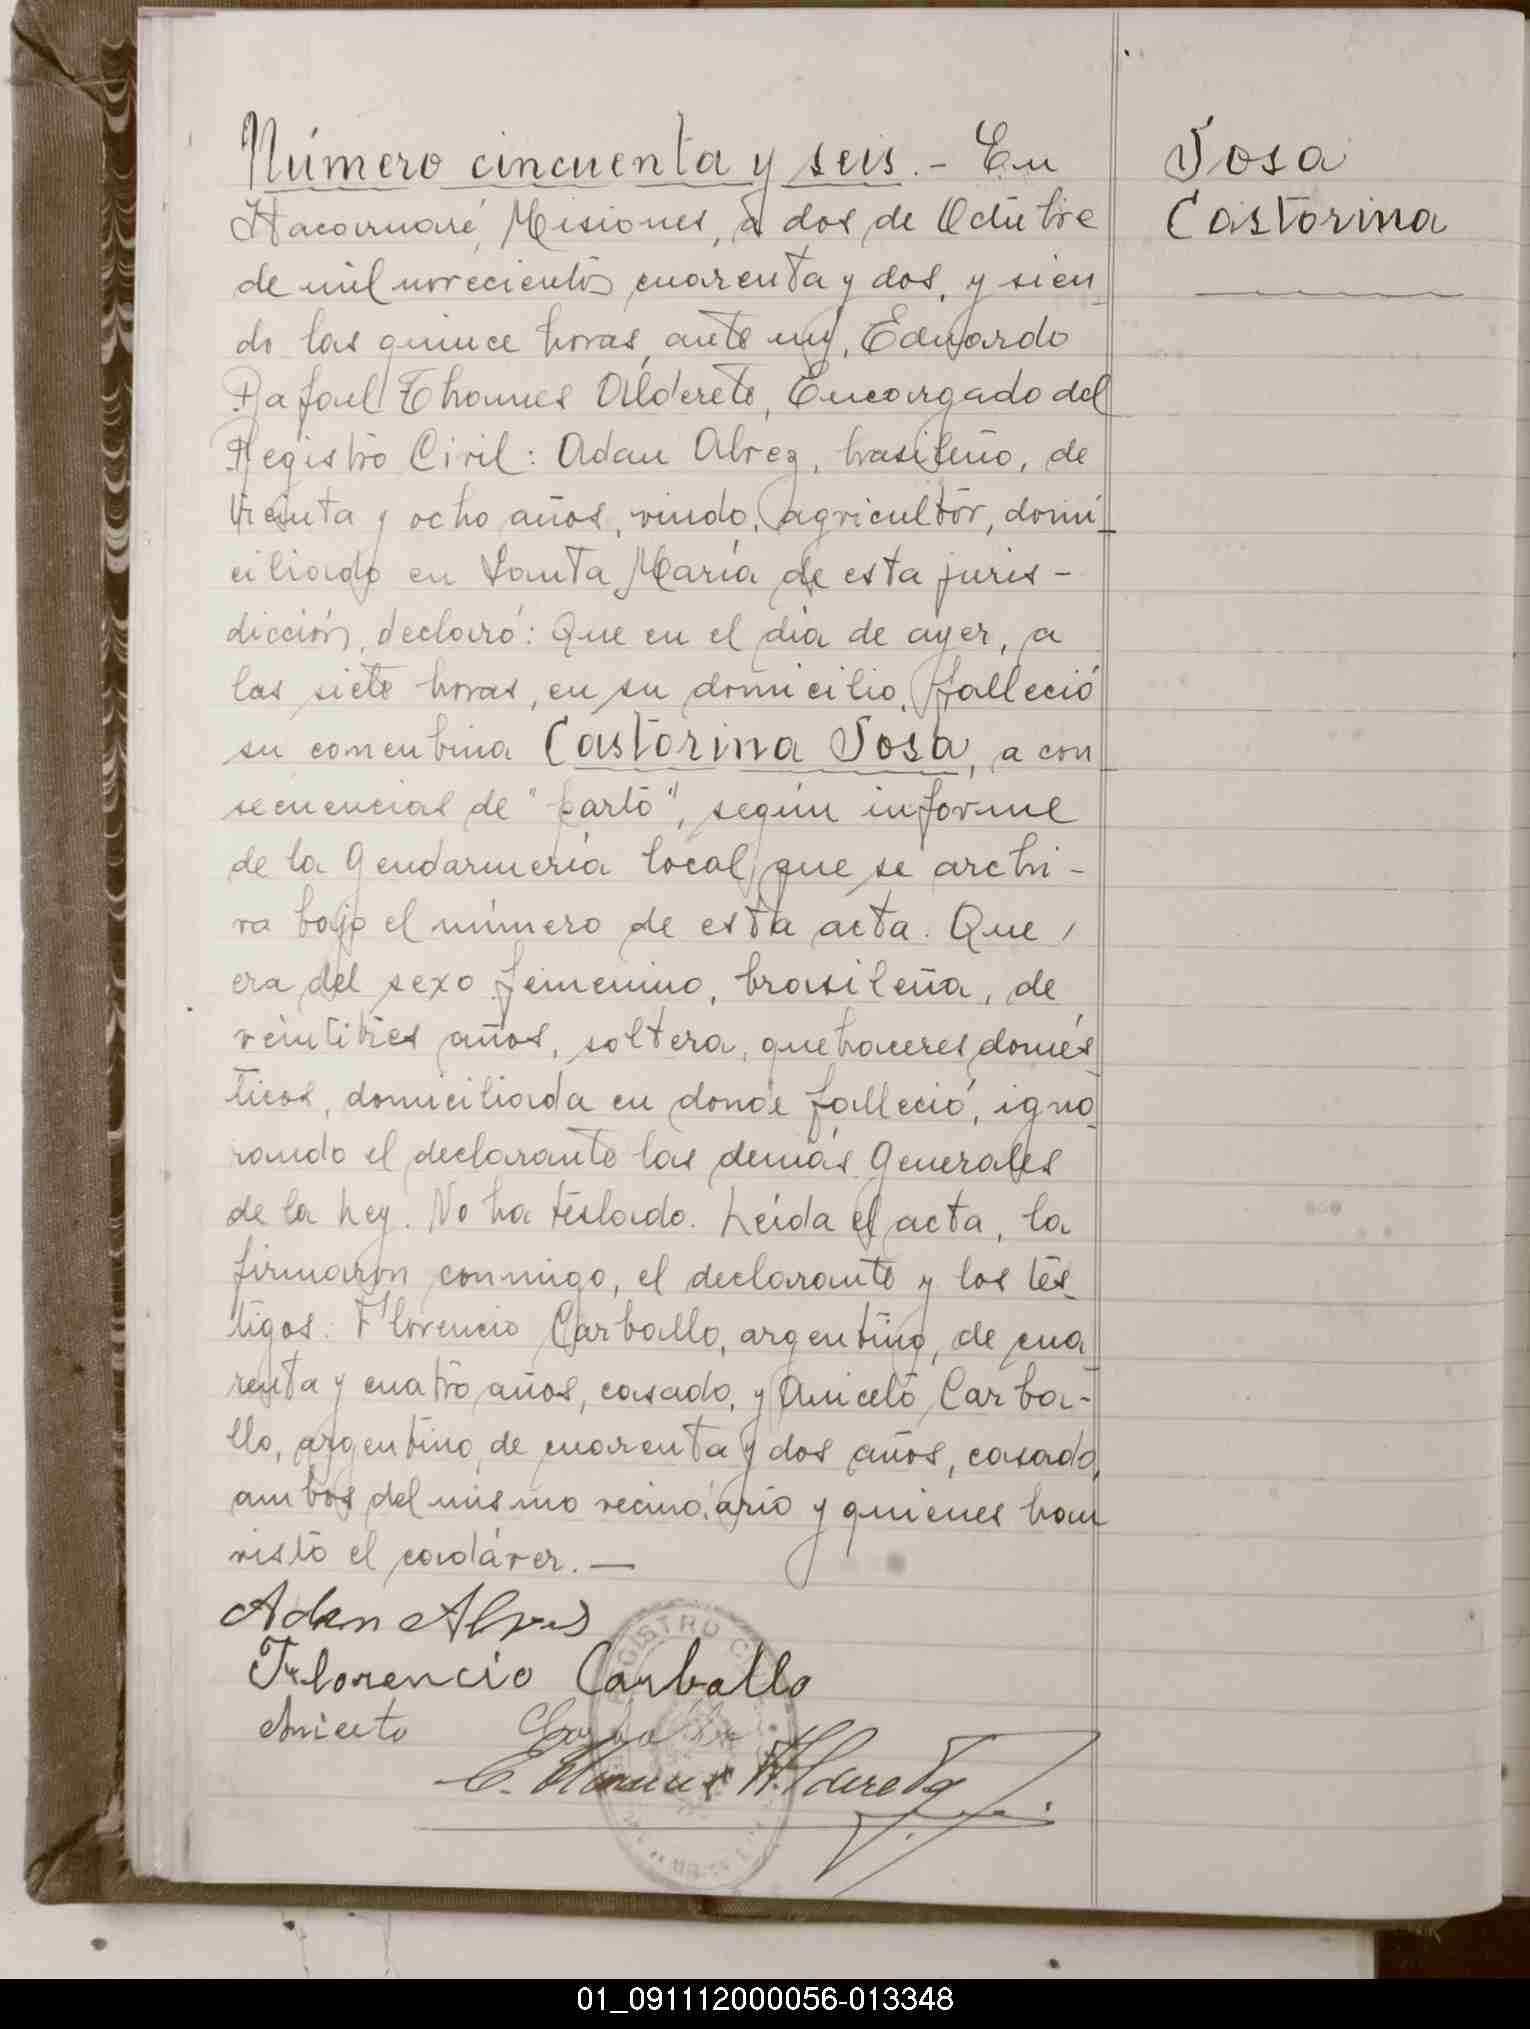 Número cincuenta y seis.- En
Itacaruaré, Misiones, a dos de Octubre
de mil novecientos cuarenta y dos, y sien_
do las quince horas, ante mí, Eduardo
Rafael Thames Alderete, Encargado del
Registro Civil: Adan Alvez, brasileño, de
treinta y ocho años, viudo, agricultor, domi_
ciliado en Santa María de esta juris-
dicción, declaró: Que en el día de ayer, a
las siete horas, en su domicilio, falleció
su concubina Castorina Sosa, a con_
secuencias de "parto", según informe
de la Gendarmería local, que se archi-
va bajo el número de esta acta. Que,
era del sexo femenino, brasileña, de
veintitrés años, soltera, quehaceres domés_
ticos, domiciliada en donde falleció, igno_
rando el declarante las demás Generales
de la Ley. No ha testado. Leída el acta, la
firmaron conmigo, el declarante y los tes_
tigos: Florencio Carballo, argentino, de cua_
renta y cuatro años, casado, y Aniceto Carba-
llo, argentino, de cuarenta y dos años, casado,
ambos del mismo vecindario y quienes han
visto el cadáver.—
Adan Alves
Florencio Carballo
Aniceto Carballo
E. Thames Alderete
REGISTRO C
Sosa
Castorina
01_091112000056-013348